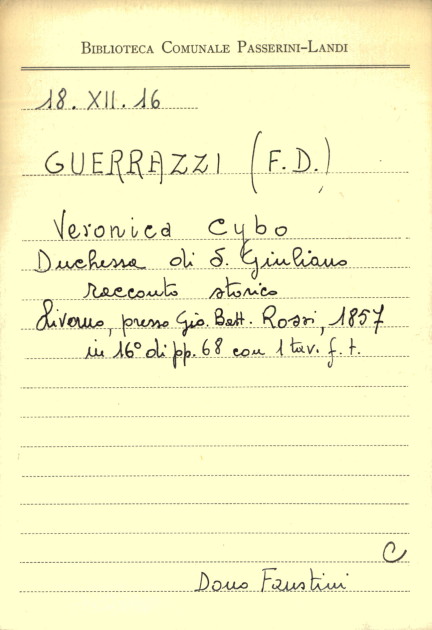 BIBLIOTECA COMUNALE PASSERINI-LANDI
18. XII. 16
GUERRAZZI (F. D.)
Veronica Cybo
Duchessa di S. Giuliano
racconto storico
Livorno, presso Gio. Batt. Rossi, 1857
in 16° di pp. 68 con 1 tav. f. t.
C
Dono Faustini